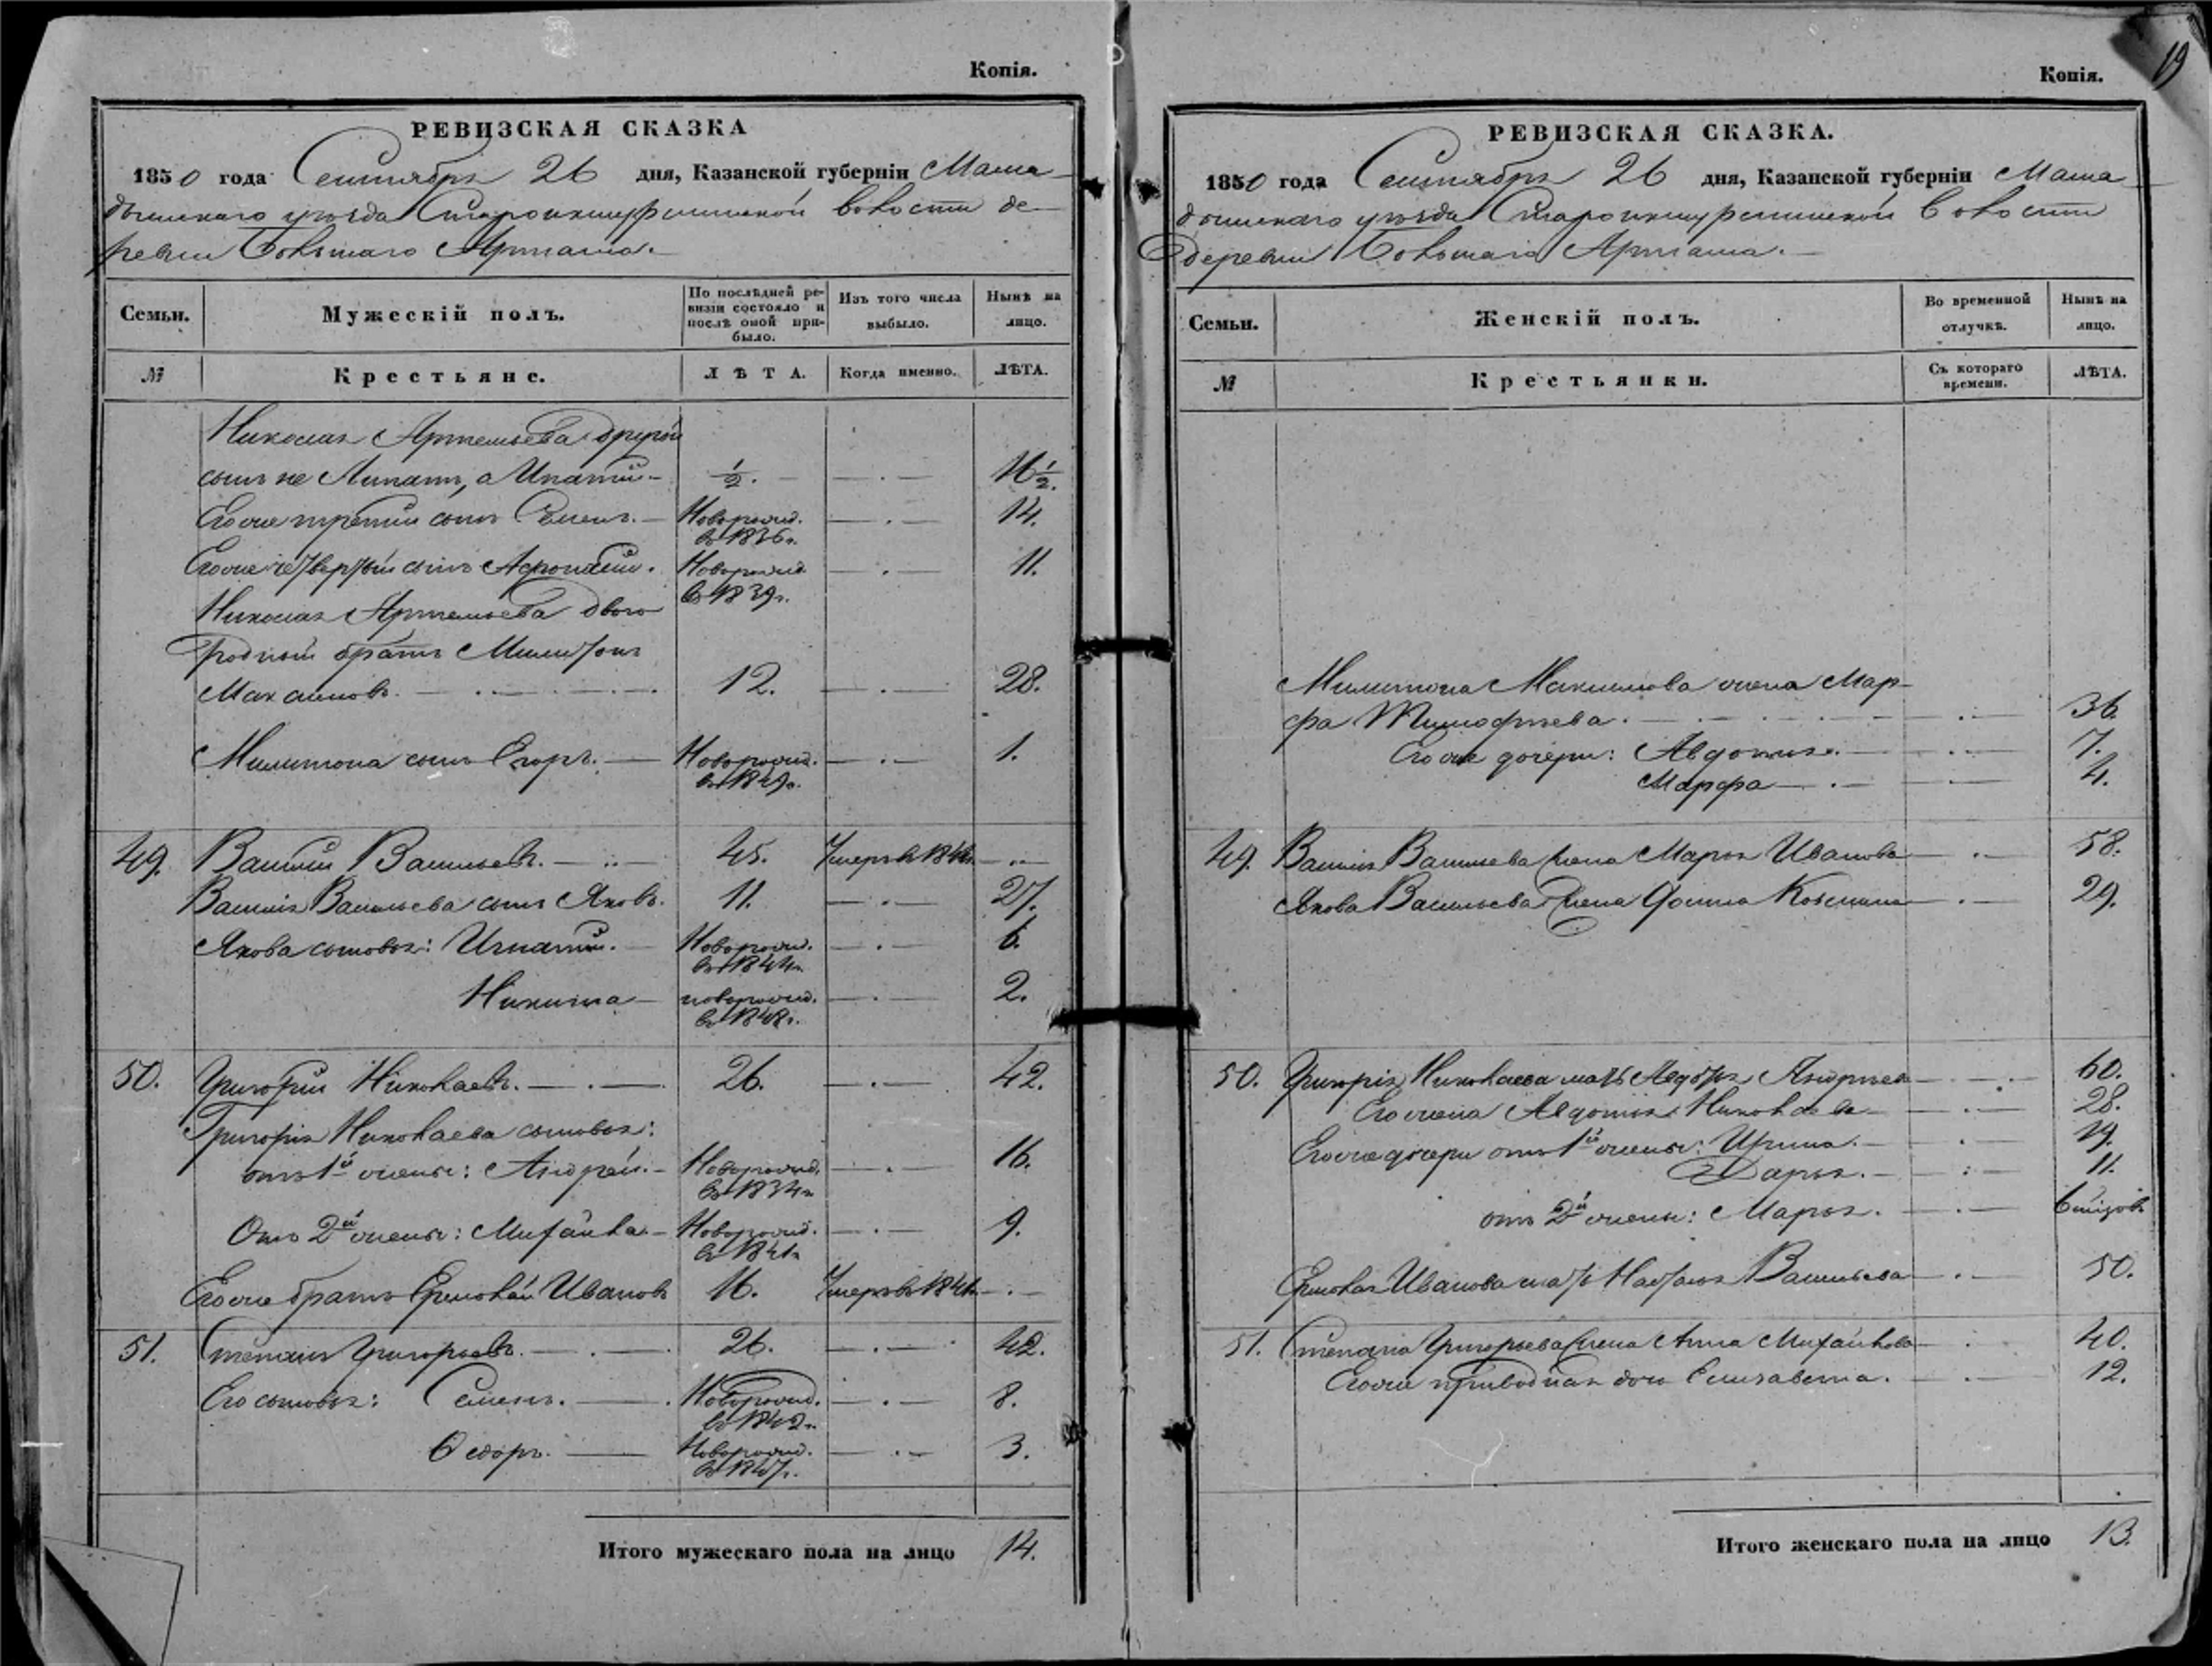 Копія.
РЕВИЗСКАЯ СКАЗКА
1850 года Сентября 26 дня, Казанской губерніи Мама-
дышскаго уѣзда Староикшурминской волости де-
ревни Большаго Арташа.
Семьи.
Мужескій полъ.
По послѣдней ре-
визіи состояло и
послѣ оной при-
было.
Изъ того числа
выбыло.
Нынѣ на
лицо.
№
Крестьяне.
ЛѢТА.
Когда именно.
ЛѢТА.
Николая Артемьева другой
сынъ не Липатъ, а Ипатій 1/2. 16 1/2.
Его же третій сынъ Семенъ. Новорожд. 14.
въ 1836 г.
Его же четвертый сынъ Афонасій. Новорожд. 11.
въ 1839 г.
Николая Артемьева двою-
родный братъ Милитонъ
Максимовъ. 12. 28.
Милитона сынъ Егоръ. Новорожд. 1.
въ 1849 г.
49. Василій Васильевъ. 45. Умеръ въ 1844
Василія Васильева сынъ Яковъ. 11. 27.
Якова сыновья: Игнатій. Новорожд. 6.
въ 1844 г.
Никита новорожд. 2.
въ 1848 г.
50. Григорій Николаевъ. 26. 42.
Григорія Николаева сыновья:
отъ 1й жены: Андрей. Новорожд. 16.
въ 1834 г.
Отъ 2й жены: Михайла Новорожд. 9.
въ 1841 г.
Его же братъ Ермолай Ивановъ 16. Умеръ въ 1841
51. Степанъ Григорьевъ. 26. 42.
Его сыновья: Семенъ. Новорожд. 8.
въ 1842 г.
Ѳедоръ. Новорожд. 3.
въ 1847 г.
Итого мужескаго пола на лицо 14.
19
Копія.
РЕВИЗСКАЯ СКАЗКА.
1850 года Сентября 26 дня, Казанской губерніи Мама-
дышскаго уѣзда Староикшурминской волости
деревни Большаго Арташа.
Семьи.
Женскій полъ.
Во временной
отлучкѣ.
Нынѣ на
лицо.
№
Крестьянки.
Съ котораго
времени.
ЛѢТА.
Милитона Максимова жена Мар-
фа Тимофѣева. 36.
Его же дочери: Авдотья. 7.
Марфа 4.
49. Василія Васильева жена Марья Иванова 58.
Якова Васильева жена Фокина Козьмина 29.
50. Григорія Николаева мать Авдотья Андреева 60.
Его жена Авдотья Николаева 28.
Его же дочери отъ 1й жены: Ирина. 19.
Дарья. 11.
отъ 2й жены: Марья. 6 мѣсяцовъ
Ермолая Иванова мать Настасья Васильева 50.
51. Степана Григорьева жена Анна Михайлова 40.
Его же приводная дочь Елизавета. 12.
Итого женскаго пола на лицо 13.